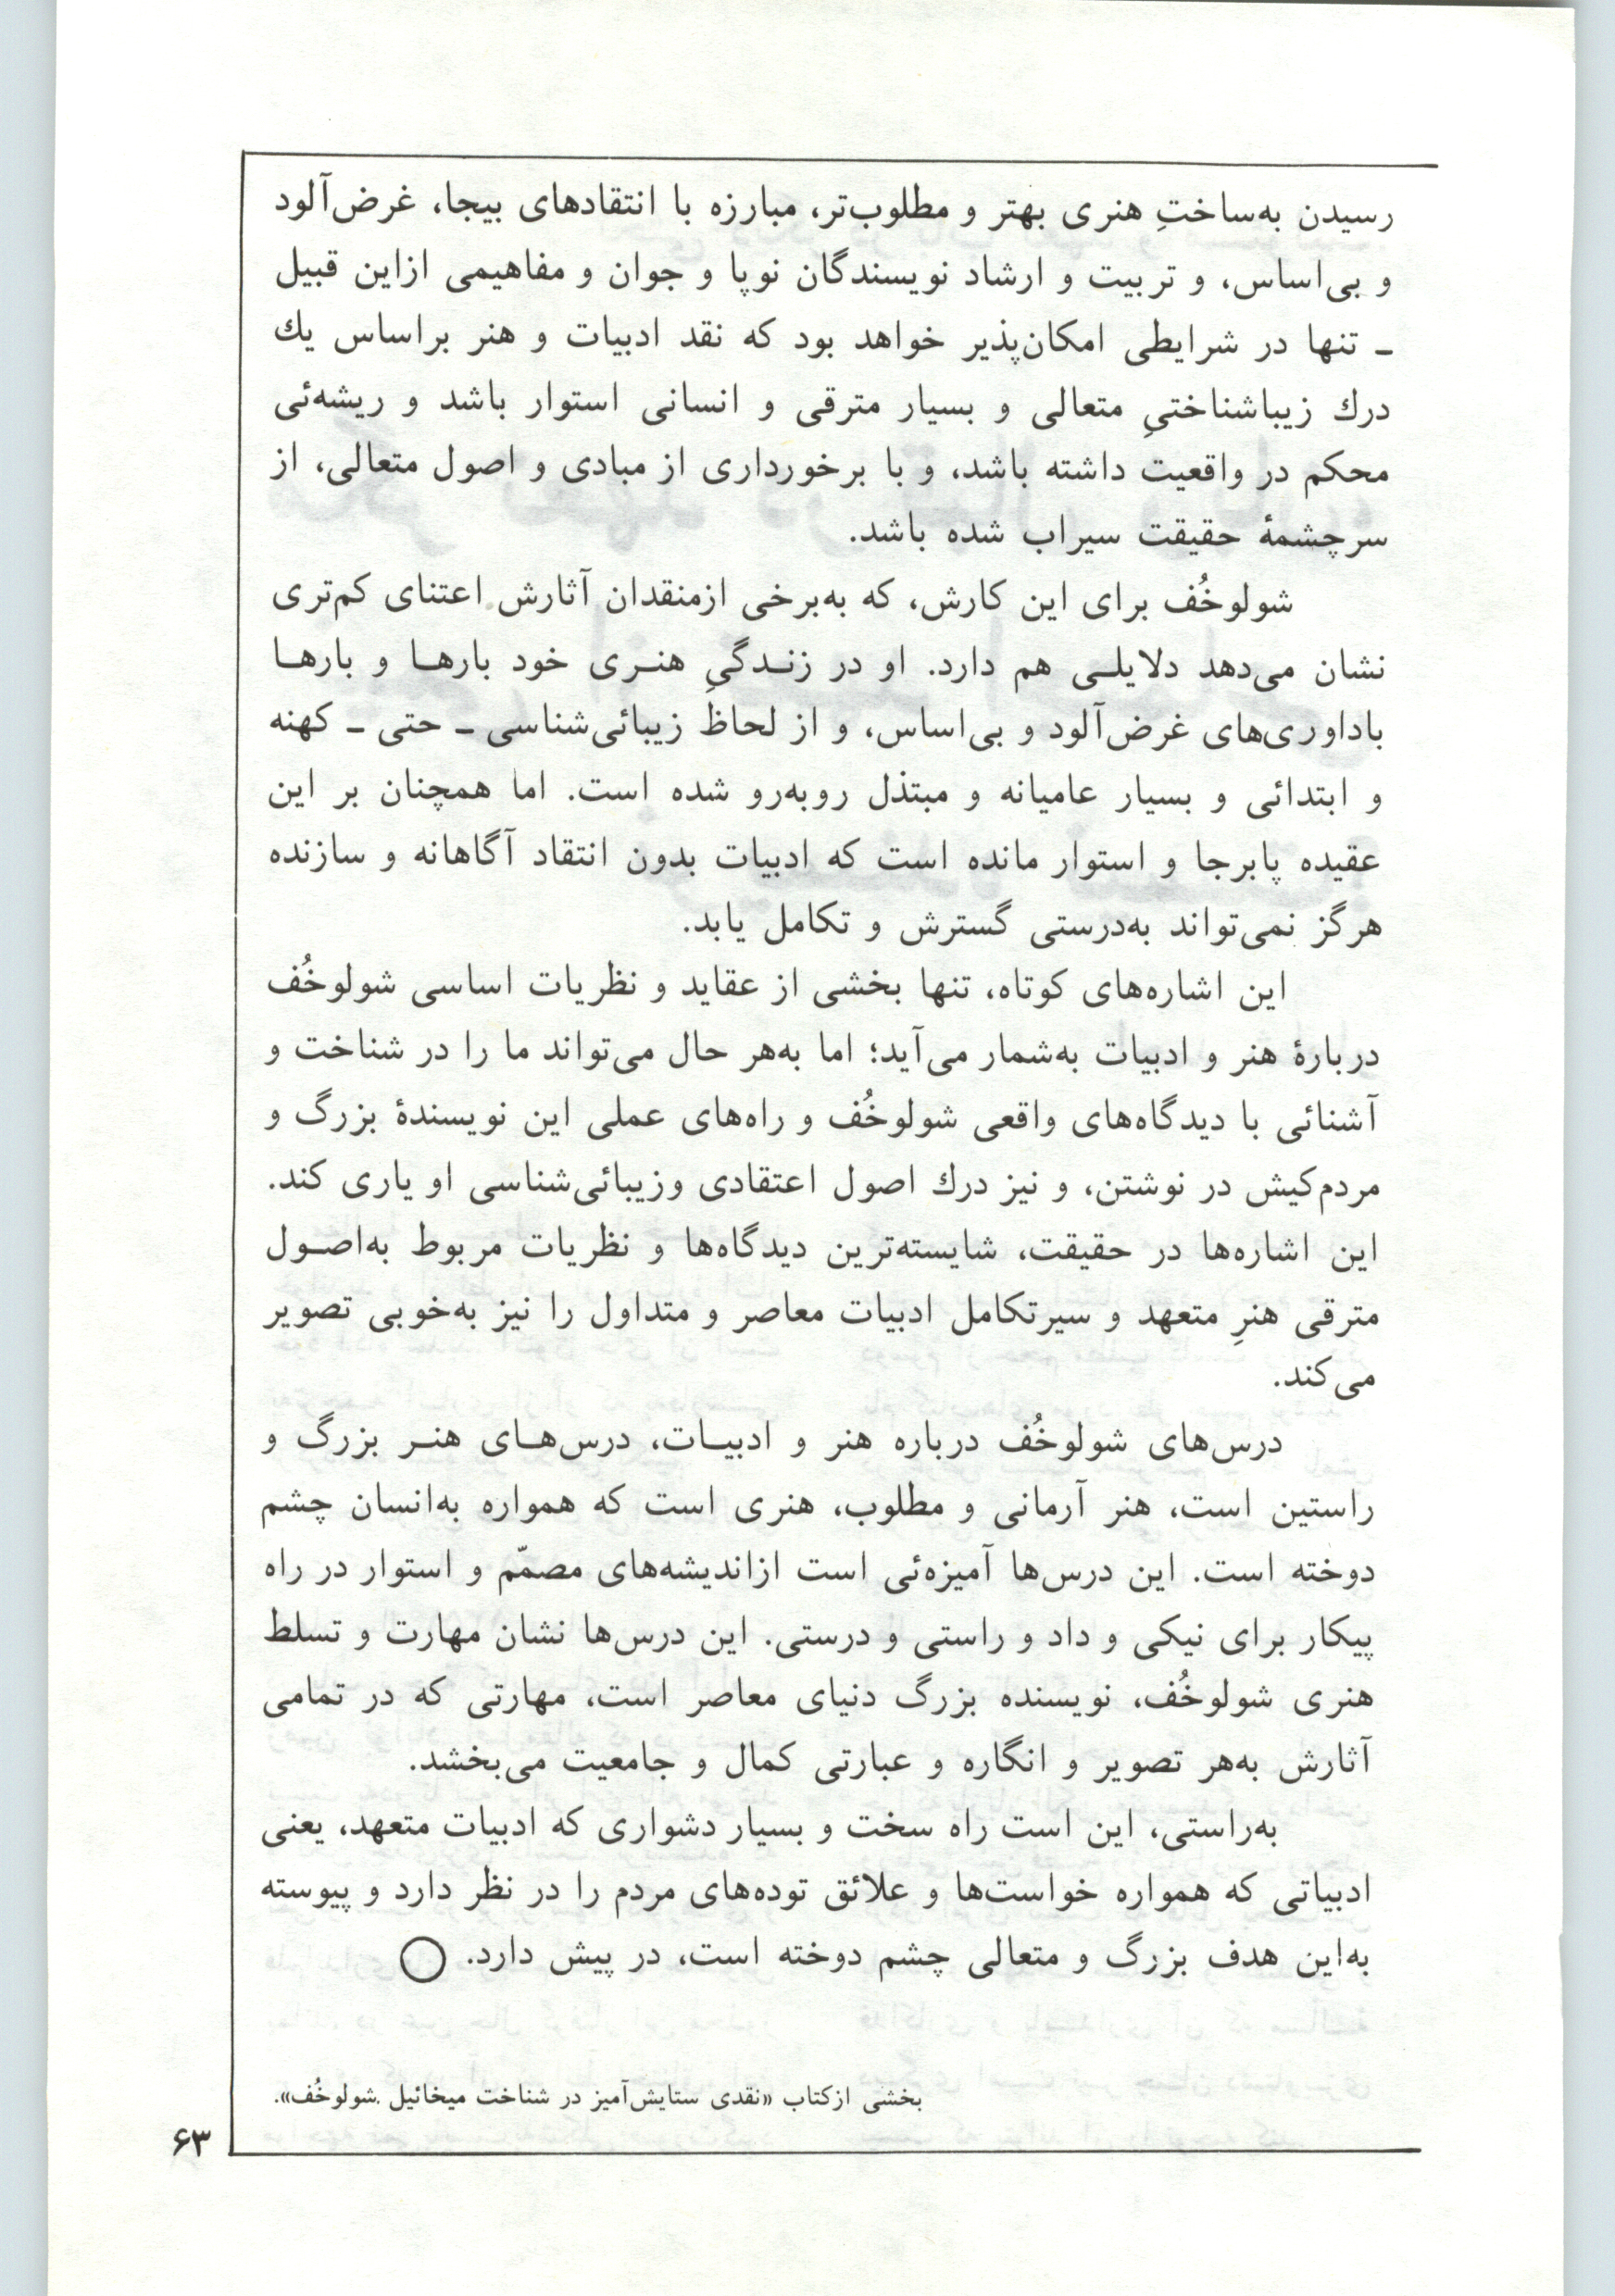 رسیدن به‌ساختِ هنری بهتر و مطلوب‌تر، مبارزه با انتقادهای بیجا، غرض‌آلود
و بی‌اساس، و تربیت و ارشاد نویسندگان نوپا و جوان و مفاهیمی ازاین قبیل
ـ تنها در شرایطی امکان‌پذیر خواهد بود که نقد ادبیات و هنر براساس يك
درك زیباشناختیِ متعالی و بسیار مترقی و انسانی استوار باشد و ریشه‌ئی
محکم در واقعیت داشته باشد، و با برخورداری از مبادی و اصول متعالی، از
سرچشمهٔ حقیقت سیراب شده باشد.
شولوخُف برای این کارش، که به‌برخی ازمنقدان آثارش اعتنای کم‌تری
نشان می‌دهد دلایلـی هم دارد. او در زنـدگیِ هنـری خود بارهـا و بارهـا
باداوری‌های غرض‌آلود و بی‌اساس، و از لحاظ زیبائی‌شناسی ـ حتی ـ کهنه
و ابتدائی و بسیار عامیانه و مبتذل روبه‌رو شده است. اما همچنان بر این
عقیده پابرجا و استوار مانده است که ادبیات بدون انتقاد آگاهانه و سازنده
هرگز نمی‌تواند به‌درستی گسترش و تکامل یابد.
این اشاره‌های کوتاه، تنها بخشی از عقاید و نظریات اساسی شولوخُف
دربارهٔ هنر و ادبیات به‌شمار می‌آید؛ اما به‌هر حال می‌تواند ما را در شناخت و
آشنائی با دیدگاه‌های واقعی شولوخُف و راه‌های عملی این نویسندهٔ بزرگ و
مردم‌کیش در نوشتن، و نیز درك اصول اعتقادی وزیبائی‌شناسی او یاری کند.
این اشاره‌ها در حقیقت، شایسته‌ترین دیدگاه‌ها و نظریات مربوط به‌اصـول
مترقی هنرِ متعهد و سیرتکامل ادبیات معاصر و متداول را نیز به‌خوبی تصویر
می‌کند.
درس‌های شولوخُف درباره هنر و ادبیـات، درس‌هـای هنـر بزرگ و
راستین است، هنر آرمانی و مطلوب، هنری است که همواره به‌انسان چشم
دوخته است. این درس‌ها آمیزه‌ئی است ازاندیشه‌های مصمّم و استوار در راه
پیکار برای نیکی و داد و راستی و درستی. این درس‌ها نشان مهارت و تسلط
هنری شولوخُف، نویسنده بزرگ دنیای معاصر است، مهارتی که در تمامی
آثارش به‌هر تصویر و انگاره و عبارتی کمال و جامعیت می‌بخشد.
به‌راستی، این است راه سخت و بسیار دشواری که ادبیات متعهد، یعنی
ادبیاتی که همواره خواست‌ها و علائق توده‌های مردم را در نظر دارد و پیوسته
به‌این هدف بزرگ و متعالی چشم دوخته است، در پیش دارد. ◯
بخشی ازکتاب «نقدی ستایش‌آمیز در شناخت میخائیل شولوخُف».
۶۳